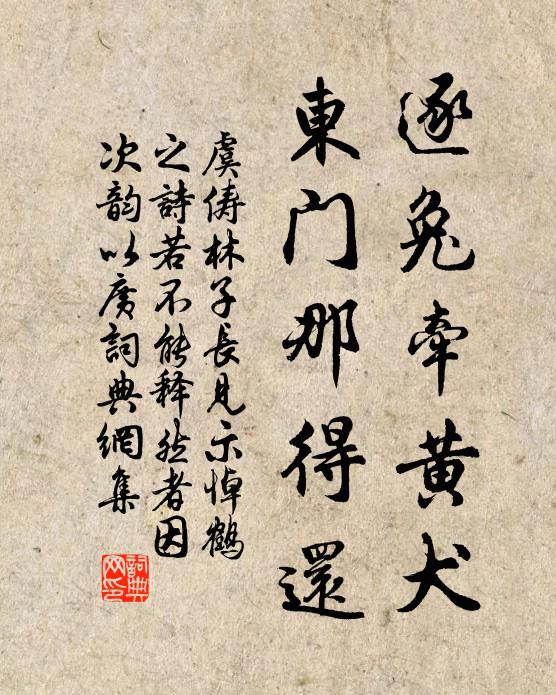 逐兔牽黄犬
東门那得還
虞俦林子長見示悼鶴
之詩若不能释然者因
次韵以广詞典網集
詞典网印